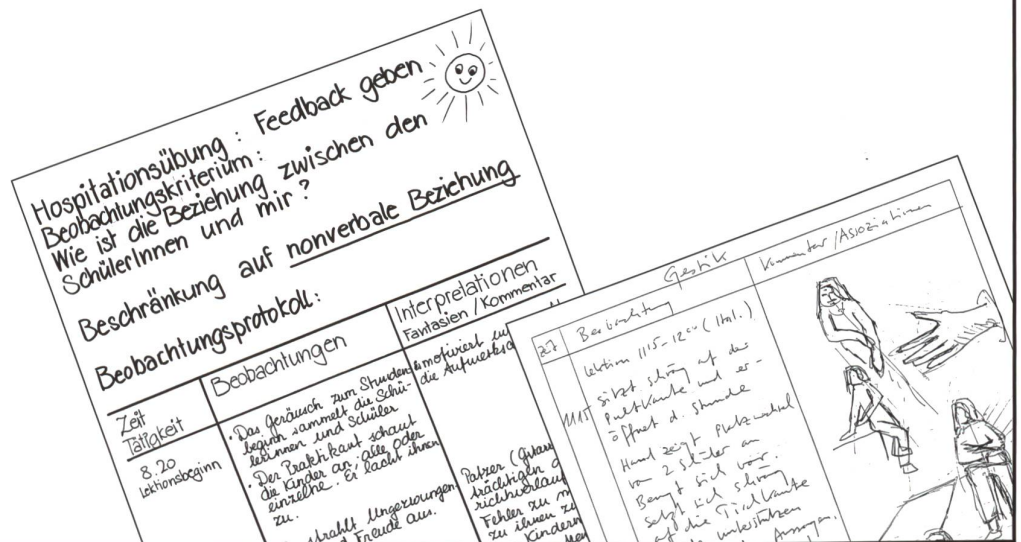 Hospitationsübung: Feedback geben
Beobachtungskriterium:
Wie ist die Beziehung zwischen den
SchülerInnen und mir?
Beschränkung auf nonverbale Beziehung
Beobachtungsprotokoll:
Zeit
Tätigkeit
8.20
Lektionsbeginn
Beobachtungen
• Das Geräusch zum Stunden
beginn sammelt die Schü-
lerinnen und Schüler
• Der Praktikant schaut
die Kinder an: alle oder
einzelne. Er lacht ihnen
zu.
strahlt Ungezwungen
Freude aus.
Interpretationen
Fantasien / Kommentar
motiviert
die
Patzer (Gitarre
trächtigen
richtsverlauf
Fehler zu
zu ihnen
Kindern
Gestik
Zt
Beobachtung
Kommentar / Assoziationen
Lektion 1115-1200 (Ital.)
1115
sitzt schräg auf der
Pultkante und er-
öffnet d. Stunde
Hand zeigt Platzwechsel
von 2 Schüler an
Beugt sich vor.
setzt sich schräg
auf die Tischkante
unterstützen